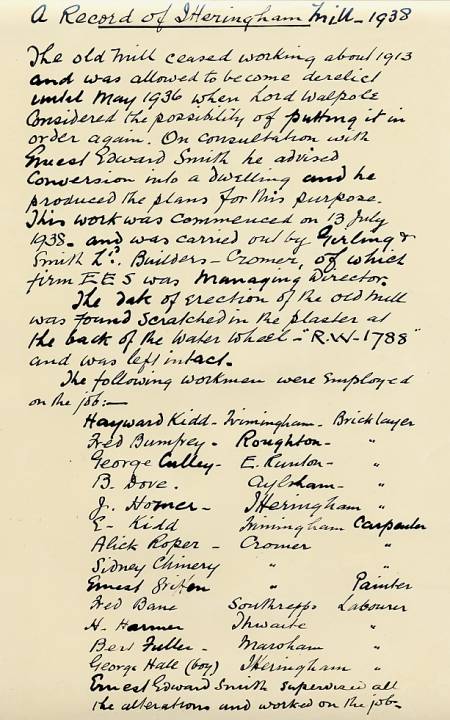 A Record of Itteringham Mill - 1938
The old Mill ceased working about 1913
and was allowed to become derelict
until May 1936 when Lord Walpole
considered the possibility of putting it in
order again. On consultation with
Ernest Edward Smith he advised
conversion into a dwelling and he
produced the plans for this purpose.
This work was commenced on 13 July
1938 - and was carried out by Girling &
Smith Ltd. Builders - Cromer, of which
firm E E S was Managing Director.
The date of erection of the old Mill
was found scratched in the plaster at
the back of the water wheel - "R.W - 1788"
and was left intact.
The following workmen were employed
on the job:-
Hayward Kidd - Irmingham - Bricklayer
Fred Bumfrey - Roughton - "
George Culley - E. Runton - "
B. Dove. Aylsham - "
J. Homer - Itteringham "
E - Kidd Irmingham Carpenter
Alick Roper - Cromer "
Sidney Chinery " "
Ernest " Painter
Fred Bane Southrepps Labourer
H. Harmer Thwaite "
Bert Fuller - Marsham "
George Hall (boy) Itteringham "
Ernest Edward Smith supervised all
the alterations and worked on the job -